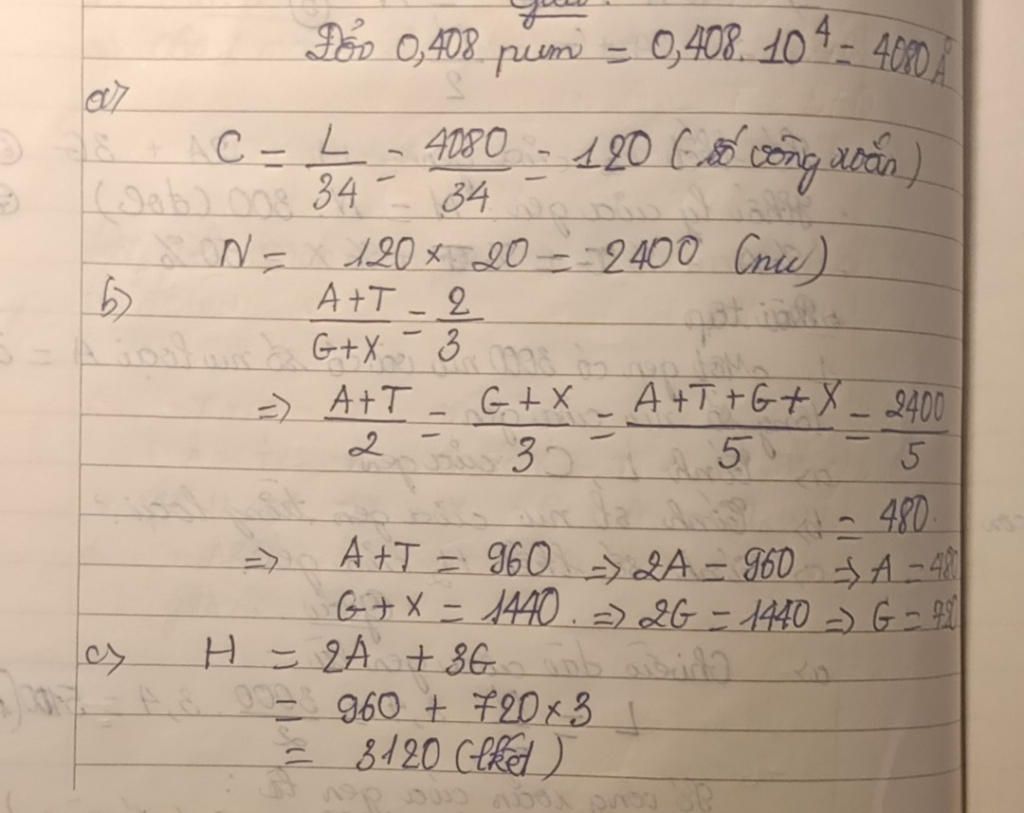 Giải:
Đổi 0,408 μm = 0,408. 10^4 = 4080 Å
a>
C = L/34 = 4080/34 = 120 (số vòng xoắn)
N = 120 × 20 = 2400 (nu)
b>
A+T/G+X = 2/3
=> A+T/2 = G+X/3 = A+T+G+X/5 = 2400/5
= 480.
=> A+T = 960 => 2A = 960 => A = 480
G+X = 1440. => 2G = 1440 => G = 720
c> H = 2A + 3G
= 960 + 720×3
= 3120 (lkết)